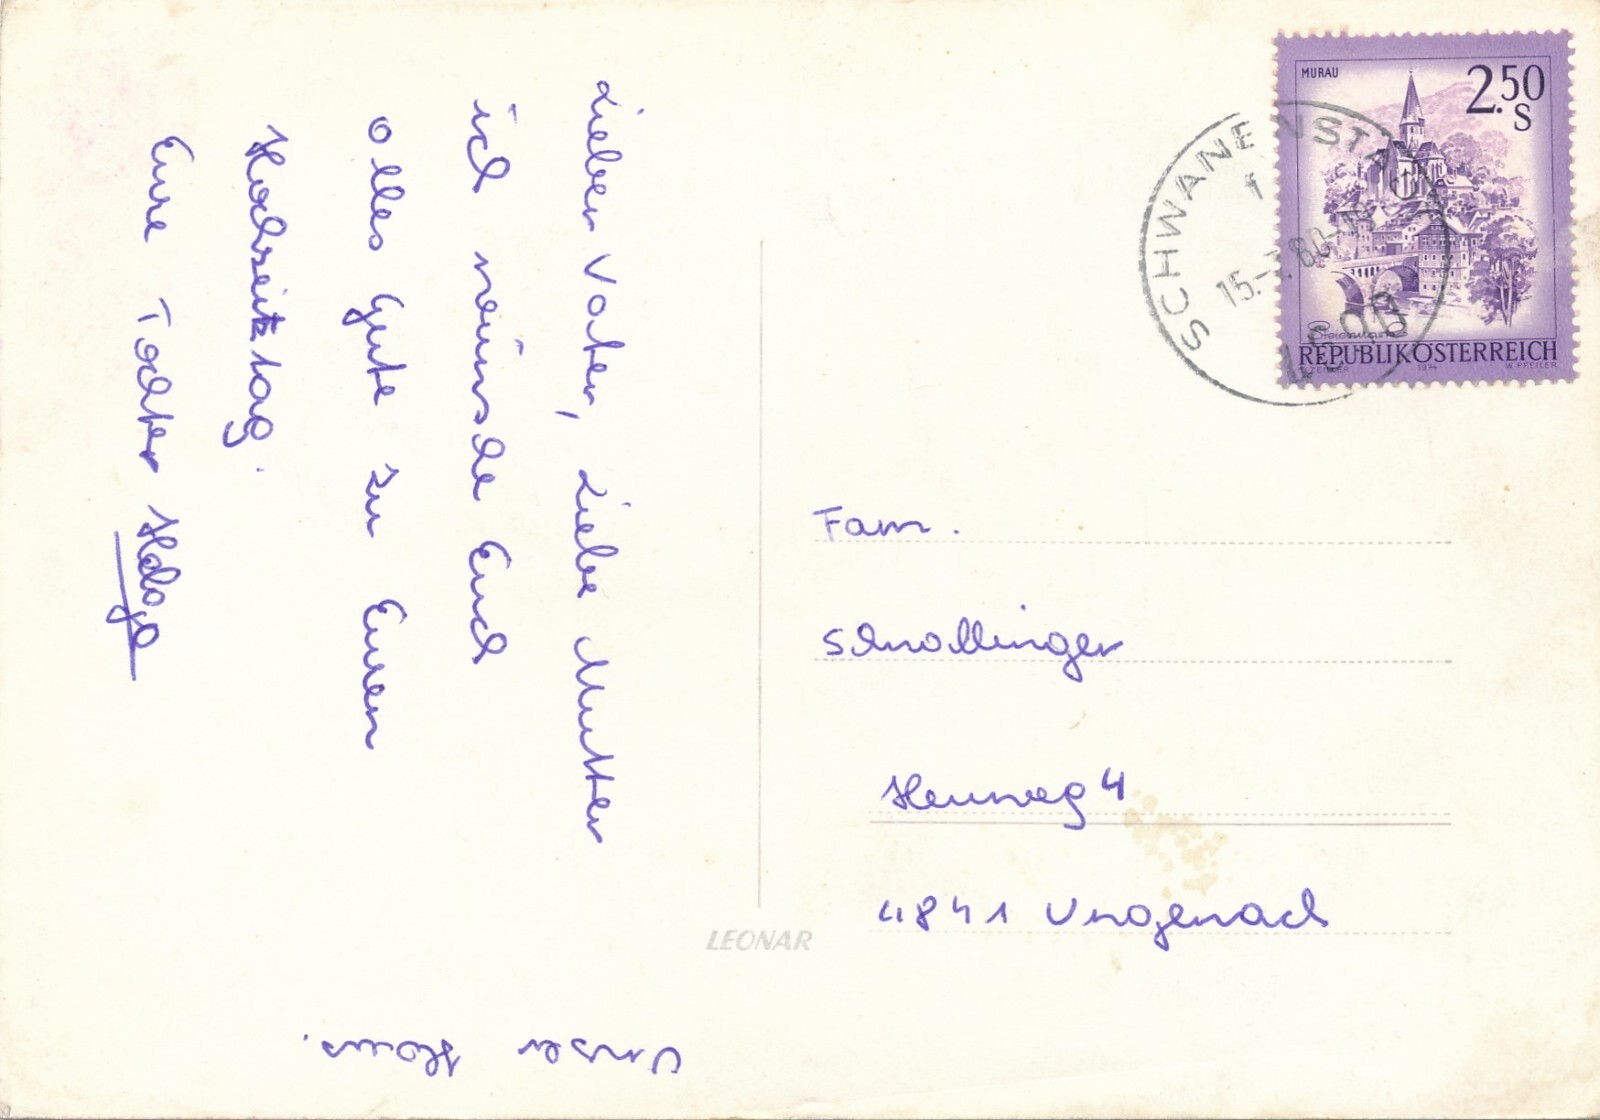 MURAU
2.50
S
SCHWANENSTADT
4690
Steiermark
REPUBLIK ÖSTERREICH
1974
W. PFEILER
Lieber Vater, Liebe Mutter
ich wünsche Euch
alles Gute zu Euren
Hochzeitstag.
Eure Tochter Helga
Fam.
Schnallinger
Heuweg 4
4841 Ungenach
LEONAR
Unser Haus.